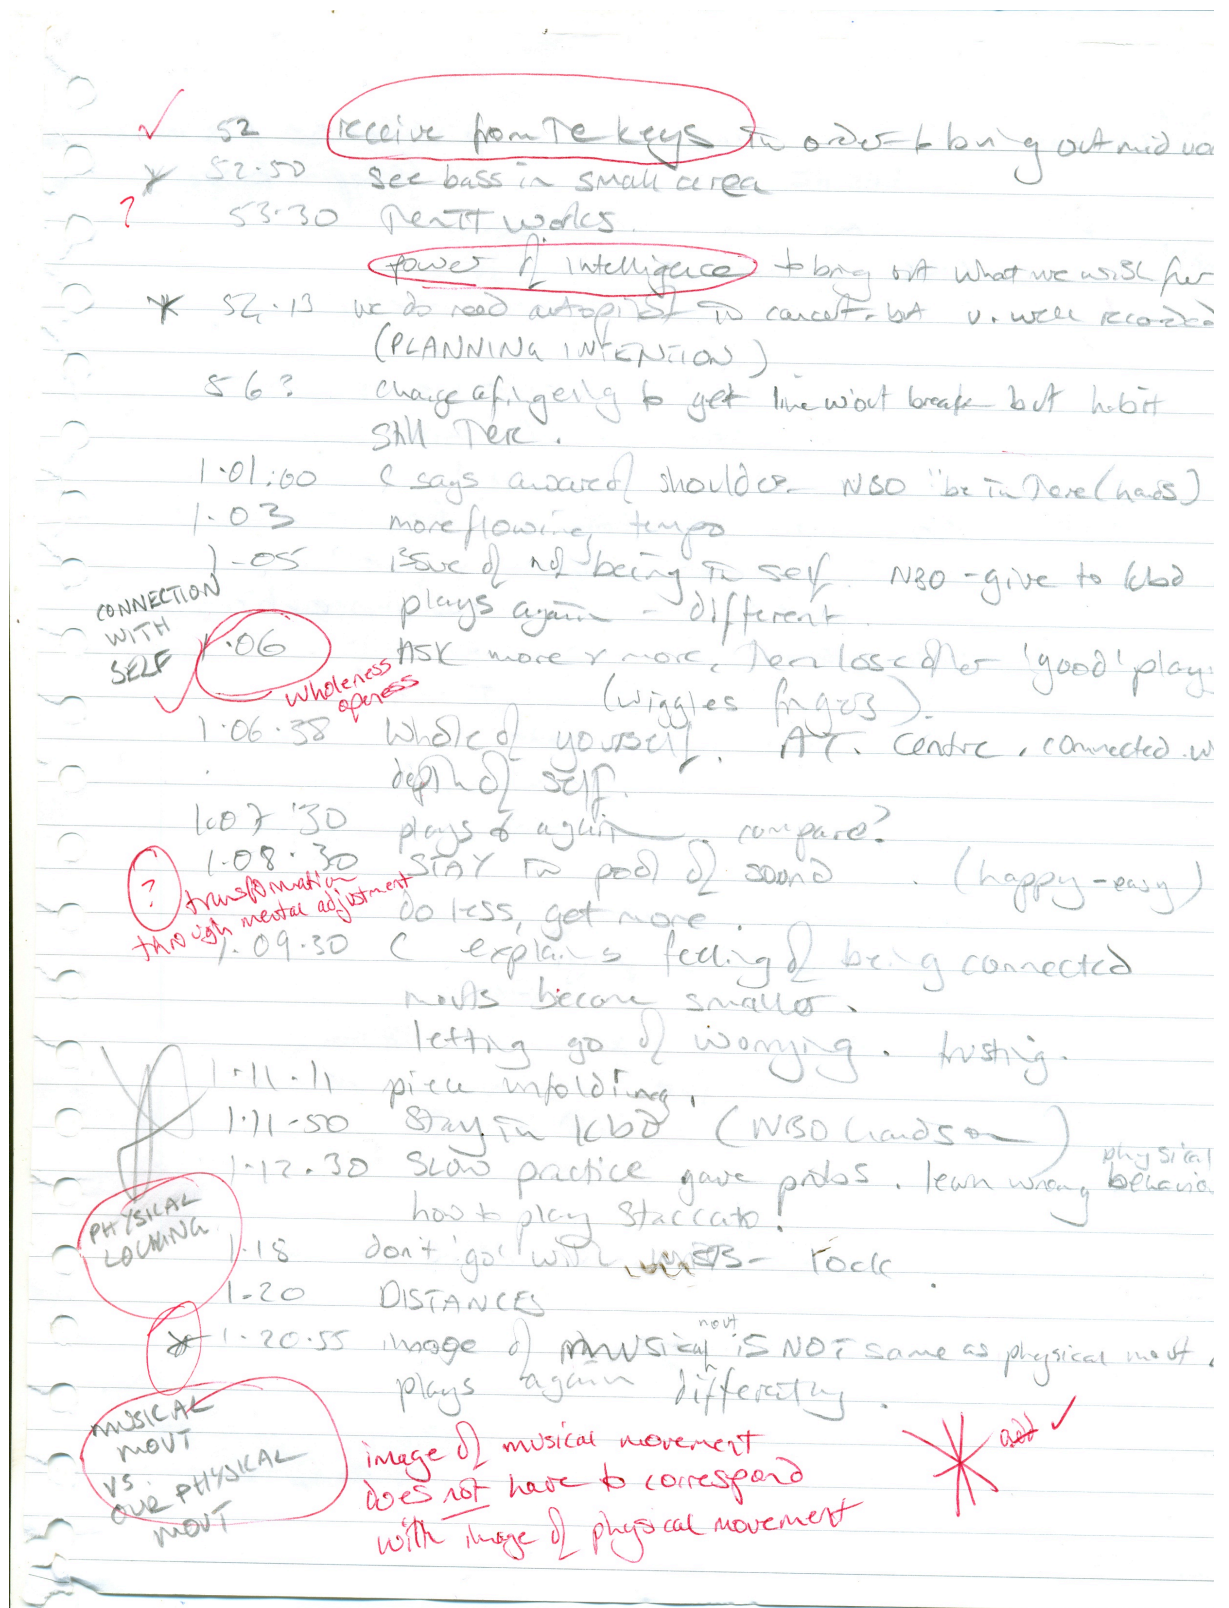 ✓ 52 receive from the keys in order to bring out mid
* 52.50 see bass in small area
? 53.30 works.
power of intelligence to bring out what we wish for
* 52.13 we do need autopilot in concert, but v. well recorded
(PLANNING INTENTION)
56? change of fingering to get line w'out break but habit
still there.
1.01:00 C says aware of shoulder NBO "be in there (hands)
1.03 more flowing tempo
1.05 issue of not being in self. NBO - give to kbd
plays again - different.
CONNECTION
WITH
SELF
✓ 1.06 ASK more & more, then lose 'good' play
wholeness
openess
(wiggles fingers).
1.06.38 Whole of yourself. A.T. Centre, connected w
depth of self.
1.07.30 plays again compare?
1.08.30 STAY in pool of sound. (happy-easy)
?
transformation
through mental adjustment
do less, get more.
1.09.30 C explains feeling of being connected
movts become smaller.
letting go of worrying. trusting.
1.11.11 piece unfolding.
1.11-50 Stay in kbd (NBO hands on)
1.12.30 Slow practice gave probs. learn wrong physical
how to play staccato!
PHYSICAL
LOCKING
1.18 don't 'go' with rock.
1-20 DISTANCES
* 1.20.55 image of musical movt IS NOT same as physical movt.
plays again differently.
MUSICAL
MOVT
VS.
OUR PHYSICAL
MOVT
image of musical movement
does not have to correspond
with image of physical movement
add ✓